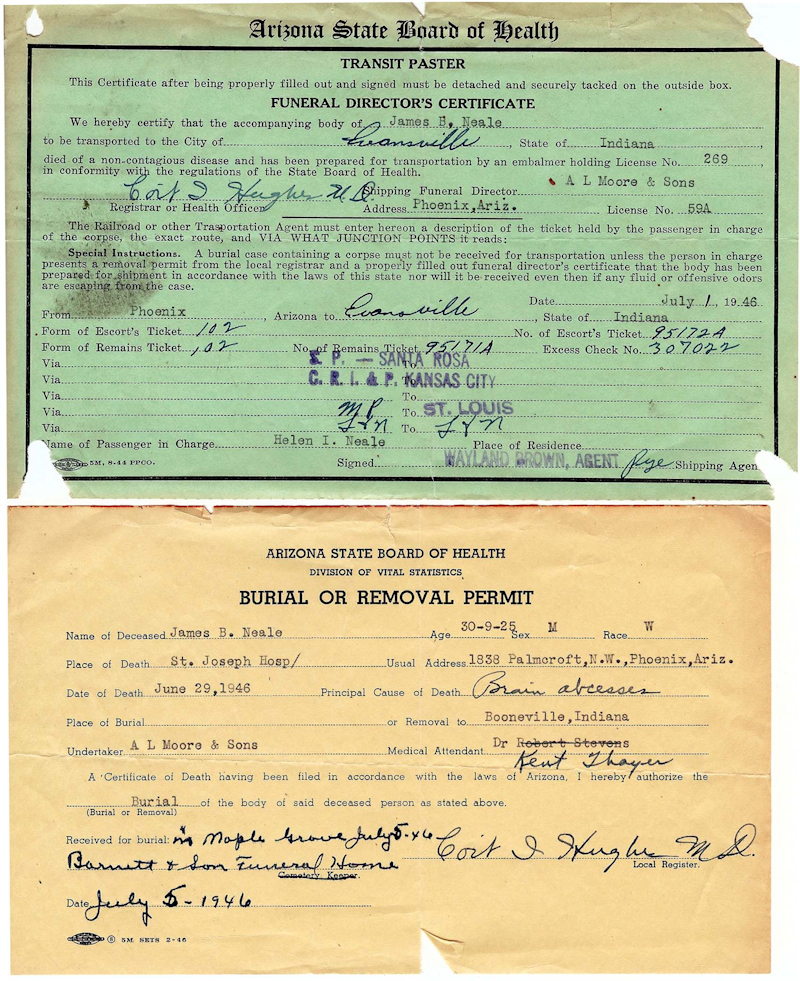 Arizona State Board of Health
TRANSIT PASTER
This Certificate after being properly filled out and signed must be detached and securely tacked on the outside box.
FUNERAL DIRECTOR'S CERTIFICATE
We hereby certify that the accompanying body of James B. Neale
to be transported to the City of Evansville, State of Indiana,
died of a non-contagious disease and has been prepared for transportation by an embalmer holding License No. 269,
in conformity with the regulations of the State Board of Health.
Coit I Hughes M.D. Shipping Funeral Director A L Moore & Sons
Registrar or Health Officer Address Phoenix,Ariz. License No. 59A
The Railroad or other Trasportation Agent must enter hereon a description of the ticket held by the passenger in charge
of the corpse, the exact route, and VIA WHAT JUNCTION POINTS it reads:
Special Instructions. A burial case containing a corpse must not be received for transportation unless the person in charge
presents a removal permit from the local registrar and a properly filled out funeral director's certificate that the body has been
prepared for shipment in accordance with the laws of this state nor will it be received even then if any fluid or offensive odors
are escaping from the case.
Date July 1, 1946
From Phoenix, Arizona to Evansville, State of Indiana
Form of Escort's Ticket 102 No. of Escort's Ticket 95172A
Form of Remains Ticket 102 No. of Remains Ticket 95171A Excess Check No. 307022
Via S. P. — To SANTA ROSA
Via C. R. I. & P. To KANSAS CITY
Via To
Via MP To ST. LOUIS
Via L&N To L&N
Name of Passenger in Charge Helen I. Neale Place of Residence
Signed WAYLAND BROWN, AGENT Shipping Agent
5M. 8-44 PPCO.
ARIZONA STATE BOARD OF HEALTH
DIVISION OF VITAL STATISTICS
BURIAL OR REMOVAL PERMIT
Name of Deceased James B. Neale Age 30-9-25 Sex M Race W
Place of Death St. Joseph Hosp/ Usual Address 1838 Palmcroft,N.W.,Phoenix,Ariz.
Date of Death June 29,1946 Principal Cause of Death Brain abcesses
Place of Burial or Removal to Booneville,Indiana
Undertaker A L Moore & Sons Medical Attendant Dr Robert Stevens
Kent Thayer
A Certificate of Death having been filed in accordance with the laws of Arizona, I hereby authorize the
Burial of the body of said deceased person as stated above.
(Burial or Removal)
Received for burial: in Maple Grove July 5-46
Coit I Hughes M.D.
Local Register.
Barnett & Son Funeral Home
Cemetery Keeper.
Date July 5-1946
5M SETS 2-46